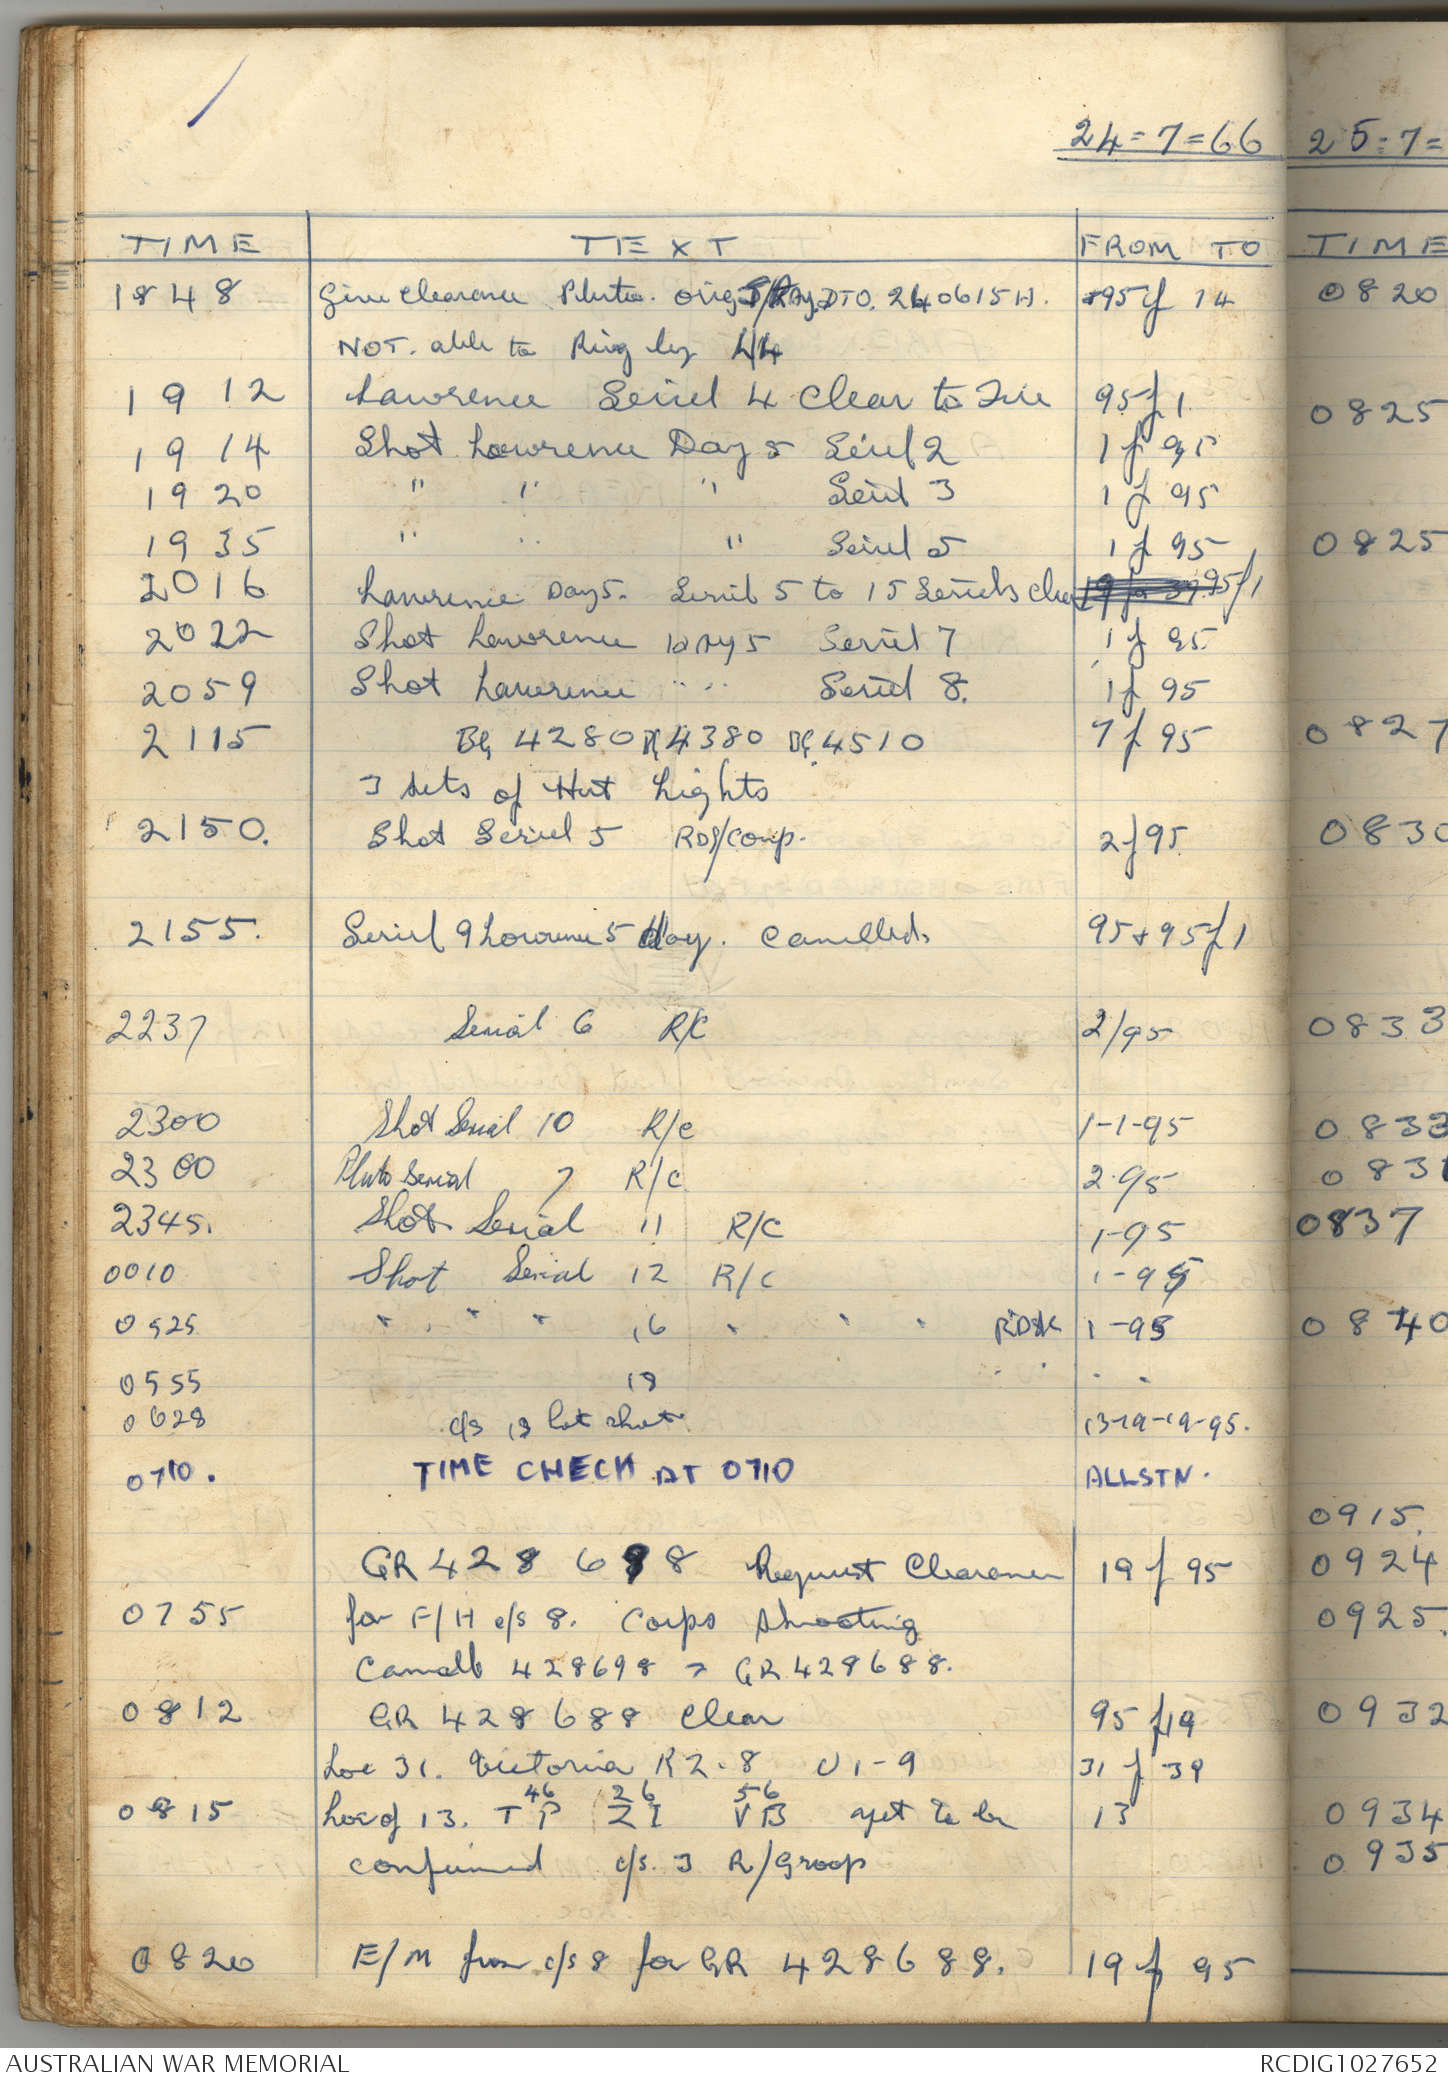 24=7=66
25=7=
TIME TEXT FROM TO
TIME
1848 Give Clearance Pluto. orig DTO. 240615H. 95 f 14
NOT. able to Ring by
1912 Lawrence Seriel 4 Clear to Fire 95 f 1
1914 Shot Lawrence Day 5 Seriel 2 1 f 95
1920 " " " Seriel 3 1 f 95
1935 " " " Seriel 5 1 f 95
2016 Lawrence Day 5. Seriel 5 to 15 Seriels clear 95 f 1
2022 Shot Lawrence DAy 5 Seriel 7 1 f 95.
2059 Shot Lawrence " " Seriel 8. 1 f 95
2115 BG 4280 BG 4380 BG 4510 7 f 95
3 sets of Hut Lights
2150. Shot Seriel 5 RDS/Comp. 2 f 95
2155. Seriel 9 Lawrence 5 day. Cancelled. 95 + 95 f 1
2237 Serial 6 R/C 2/95
2300 Shot Serial 10 R/C 1-1-95
2300 Pluto Serial 7 R/C 2-95
2345. Shot Serial 11 R/C 1-95
0010 Shot Serial 12 R/C 1-95
0525 " " " 16 " " " 1-95
0555 18 " " " "
0628 c/s 13 lot shot 13-19-19-95.
0710. TIME CHECK AT 0710 ALLSTN.
GR 428 698 Request Clearance 19 f 95
0755 for F/H c/s 8. Corps shooting
Cancell 428698 > GR 428688.
0812 GR 428688 Clear 95 f 19
Loc 31. Victoria K2-8 U1-9 31 f 39
46 26 56
0815 Loc of 13. T P Z I V B yet to be 13
confirmed c/s. 3 R/Group
0820 E/M from c/s 8 for GR 428688. 19 f 95
0820
0825
0825
0827
0830
0833
0833
083
0837
0840
0915.
0924
0925.
0932
0934
0935
AUSTRALIAN WAR MEMORIAL RCDIG1027652